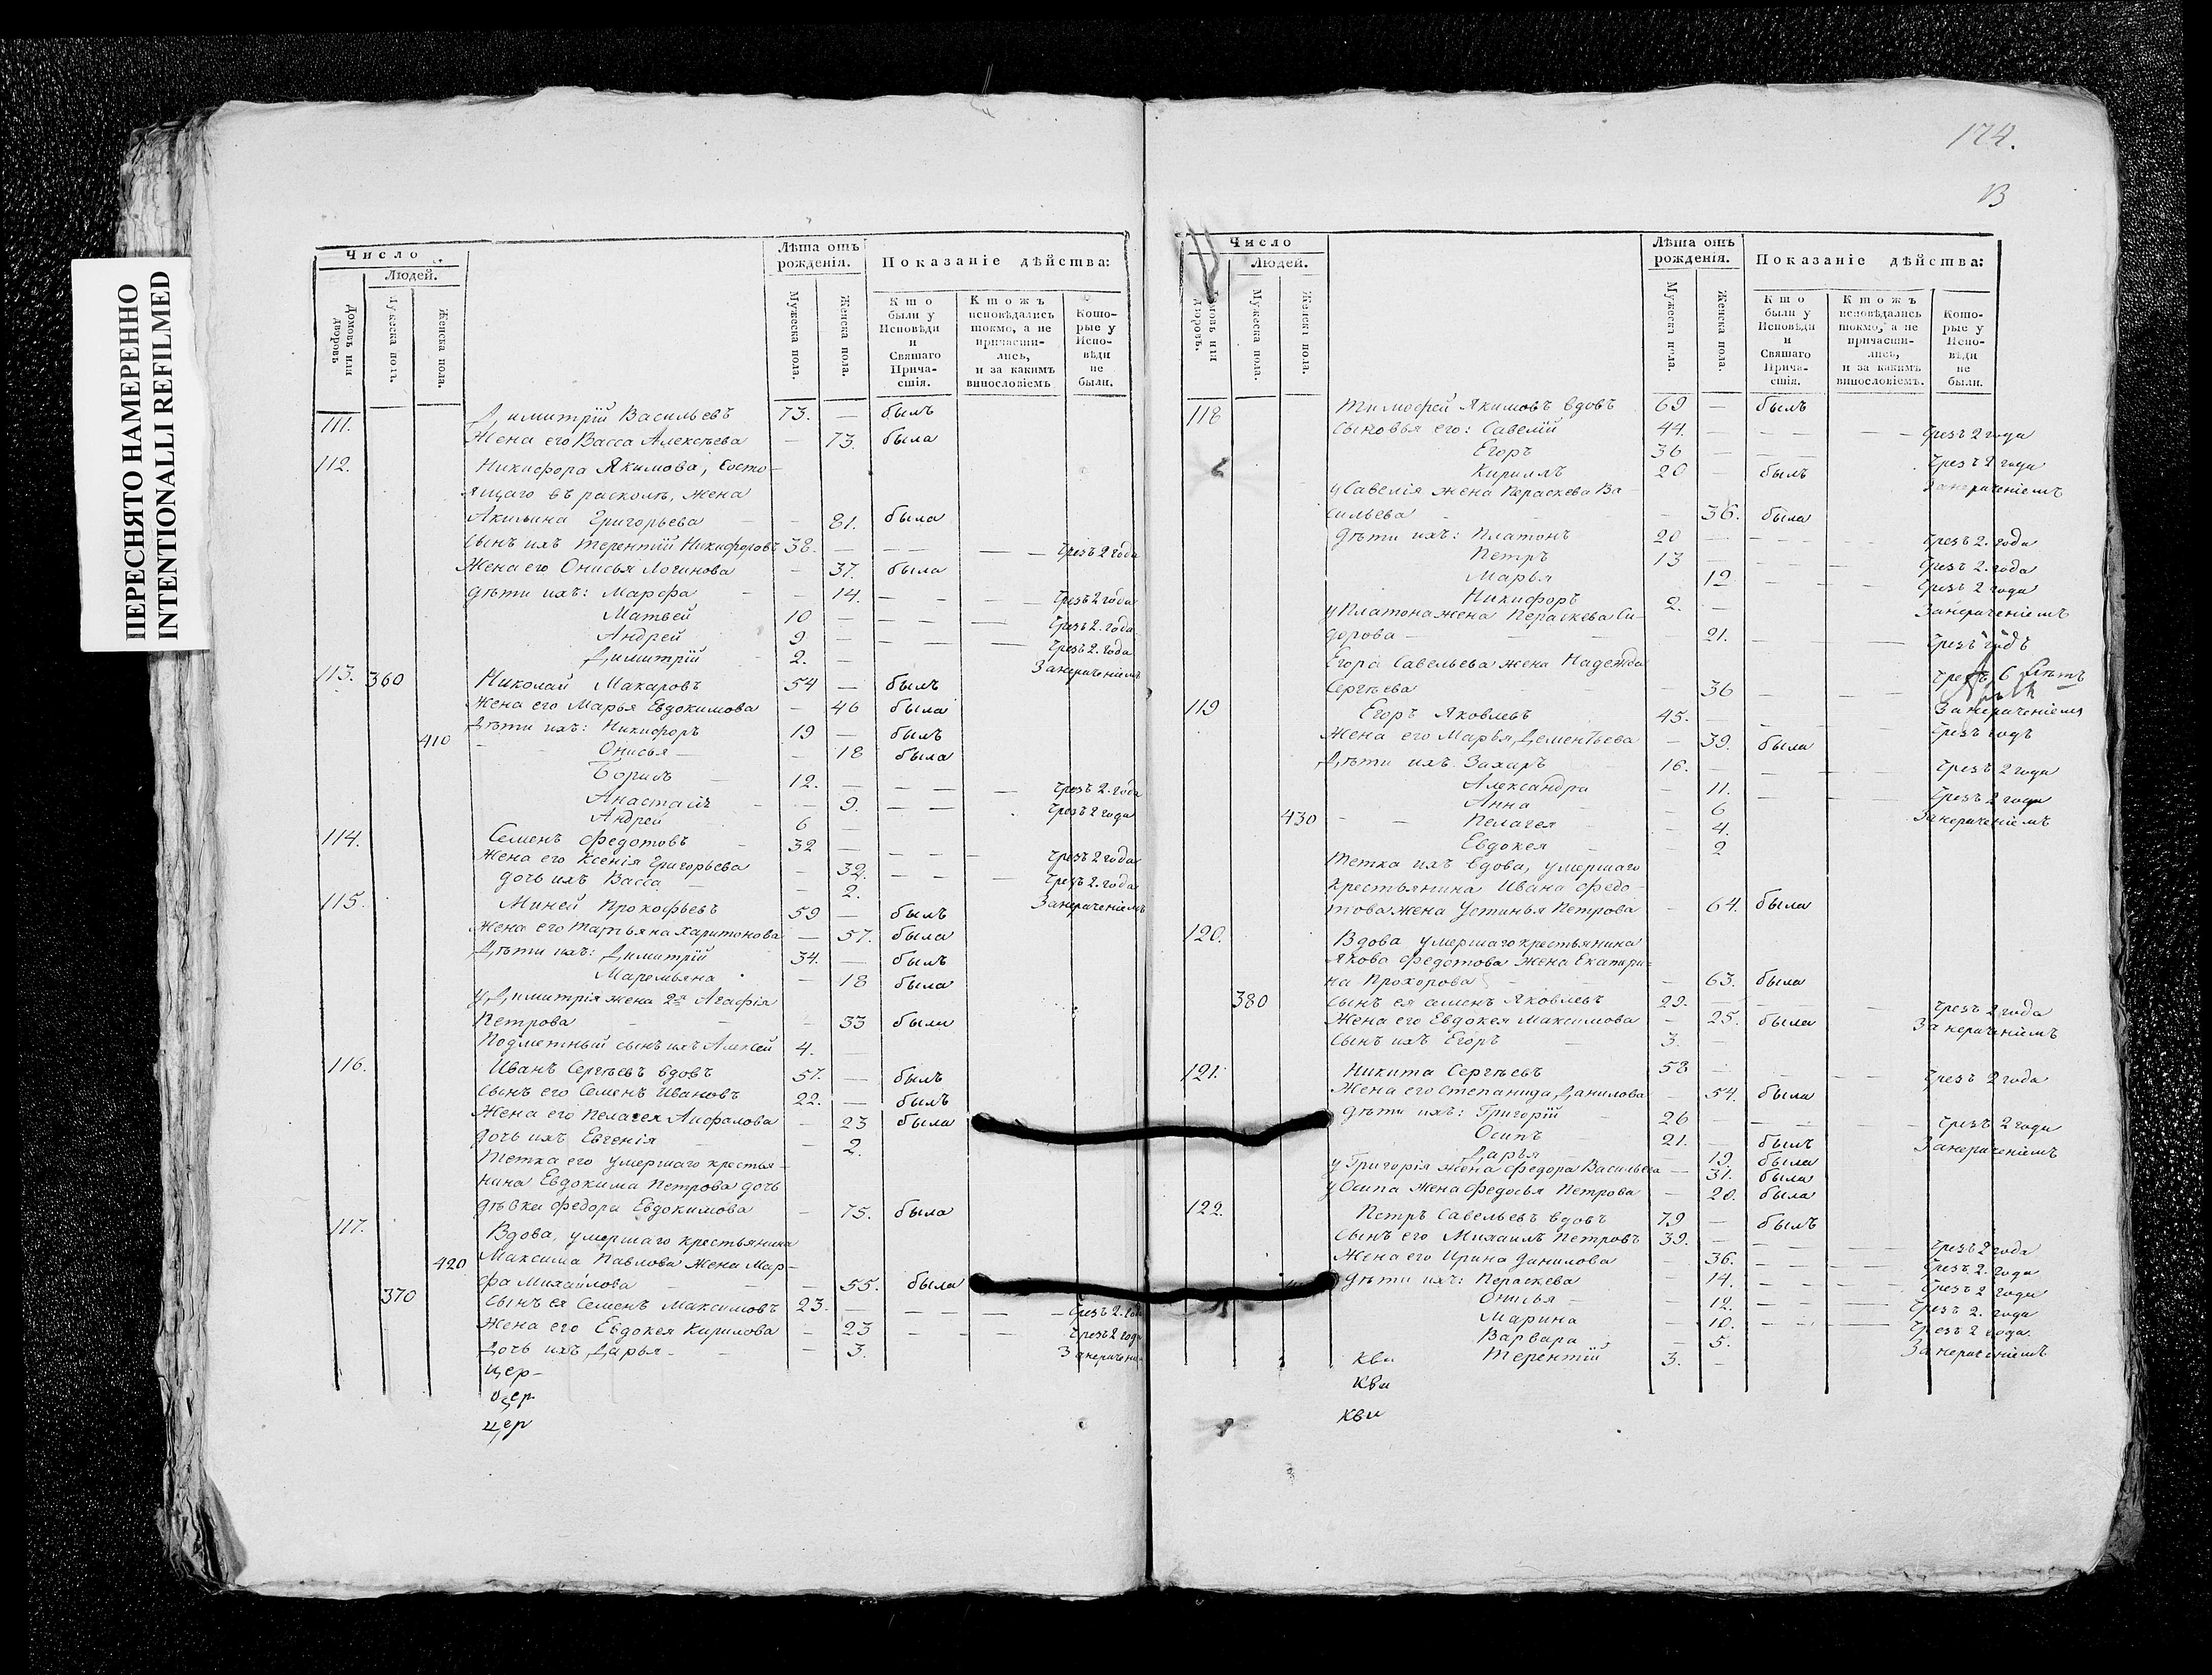 ПЕРЕСНЯТО НАМЕРЕННО
INTENTIONALLI REFILMED
Число
Людей.
Домовъ или дворовъ
Мужеска пола.
Женска пола.
Лѣта отъ рожденія.
Мужеска пола.
Женска пола.
Показаніе дѣйства:
Кто были у Исповѣди и Святаго Причастія.
Ктожъ исповѣдались токмо, а не причастились, и за какимъ винословіемъ
Которые у Исповѣди не были.
111. Димитрій Васильевъ 73. — былъ
Жена его Васса Алексѣева — 73. была
112. Никифора Якимова, состо-
ящаго въ расколѣ, жена
Акилина Григорьева — 81. была
сынъ ихъ Терентій Никифоровъ 38. — — — — чрезъ 2 года
Жена его Онисья Логинова — 37. была
дѣти ихъ: Марфа — 14. — — — чрезъ 2 года
Матвей 10 — — — — чрезъ 2. года
Андрей 9 — — — — чрезъ 2. года
Димитрій 2. — Занерачѣніемъ
113. 360 Николай Макаровъ 54 — былъ
Жена его Марья Евдокимова — 46 была
Дѣти ихъ: Никифоръ 19 — былъ
410 Онисья — 18 была
Борисъ 12. — — — — чрезъ 2. года
Анастасія — 9. — — чрезъ 2 года
Андрей 6 —
114. Семенъ Федотовъ 32 — — — чрезъ 2 года
Жена его Ксенія Григорьева — 32. — — — чрезъ 2. года
дочь ихъ Васса — 2. Занераченіемъ
115. Миней Прокофьевъ 59 — былъ
Жена его Татьяна Харитонова — 57. была
Дѣти ихъ: Димитрій 34. — былъ
Маремьяна — 18 была
У Димитрія жена 2я Агафія
Петрова — 33 была
Подметный сынъ ихъ Алексей 4. —
116. Иванъ Сергѣевъ вдовъ 57. — былъ
сынъ его Семенъ Ивановъ 22. — былъ
Жена его Пелагея Анфалова — 23 была
дочь ихъ Евгенія — 2.
Тетка его умершаго крестья-
нина Евдокима Петрова дочь
дѣвка Федора Евдокимова — 75. была
117. Вдова, умершаго крестьянина
420 Максима Павлова жена Мар-
фа Михайлова — 55. была
370 сынъ ея Семенъ Максимовъ 23. — — — — — чрезъ 2. года
Жена его Евдокея Кирилова — 23 — — — чрезъ 2 года
Дочь ихъ Дарья — — 3. Занерачени
цер-
цер
цер
174.
В
Число
Людей.
Домовъ или дворовъ.
Мужеска пола.
Женска пола.
Лѣта отъ рожденія.
Мужеска пола.
Женска пола.
Показаніе дѣйства:
Кто были у Исповѣди и Святаго Причастія.
Ктожъ исповѣдались токмо, а не причастились, и за какимъ винословіемъ.
Которые у Исповѣди не были.
118 Тимофей Якимовъ вдовъ 69 — былъ
Сыновья его: Савелій 44. — — — — чрезъ 2 года
Егоръ 36 — — — чрезъ 2 года
Кирилъ 20 — былъ Занераченіемъ
у Савелія жена Пераскева Ва-
сильева — 36. была
дѣти ихъ: Платонъ 20 — — — — чрезъ 2. года
Петръ 13 — — — чрезъ 2. года
Марья 12 — — — чрезъ 2 года
Никифоръ 2. — Занераченіемъ
у Платона жена Пераскева Си-
дорова — 21. — — чрезъ годъ
Егора Савельева жена Надежда
Сергѣева — 36 — — — чрезъ 6 лѣтъ
119 Егоръ Яковлевъ 45. — — — Занераченіемъ
Жена его Марья Дементьева — 39. была чрезъ годъ
Дѣти ихъ Захаръ 16. — — — чрезъ 2 года
Александра — 11. — — чрезъ 2 года
Анна — 6 Занераченіемъ
430 Пелагея — 4.
Евдокея — 2
Тетка ихъ вдова, умершаго
крестьянина Ивана Федо-
това жена Устинья Петрова — 64. была
120. Вдова умершаго крестьянина
Якова Федотова жена Екатери-
на Прохорова — 63. была
380 сынъ ея семенъ Яковлевъ 29. — — — чрезъ 2 года
Жена его Евдокея Максимова — 25. была Занераченіемъ
сынъ ихъ Егоръ 3. —
121. Никита Сергѣевъ 58 — — — чрезъ 2 года
Жена его Степанида Данилова — 54. была
дѣти ихъ: Григорій 26 — — — чрезъ 2 года
Осипъ 21. — былъ Занераченіемъ
Дарья — 19. была
у Григорія жена Федора Васильева — 31. была
у Осипа жена Федосья Петрова — 20. была
122. Петръ Савельевъ вдовъ 79 — былъ
сынъ его Михаилъ Петровъ 39. — — — чрезъ 2 года
Жена его Ирина Данилова — 36. — — — чрезъ 2. года
дѣти ихъ: Пераскева — 14. — — — чрезъ 2 года
Онисья — 12. — — — чрезъ 2. года
Марина — 10. — — — чрезъ 2 года.
Варвара — 5. Занераченіемъ
Терентій 3. —
кви
кви
кви